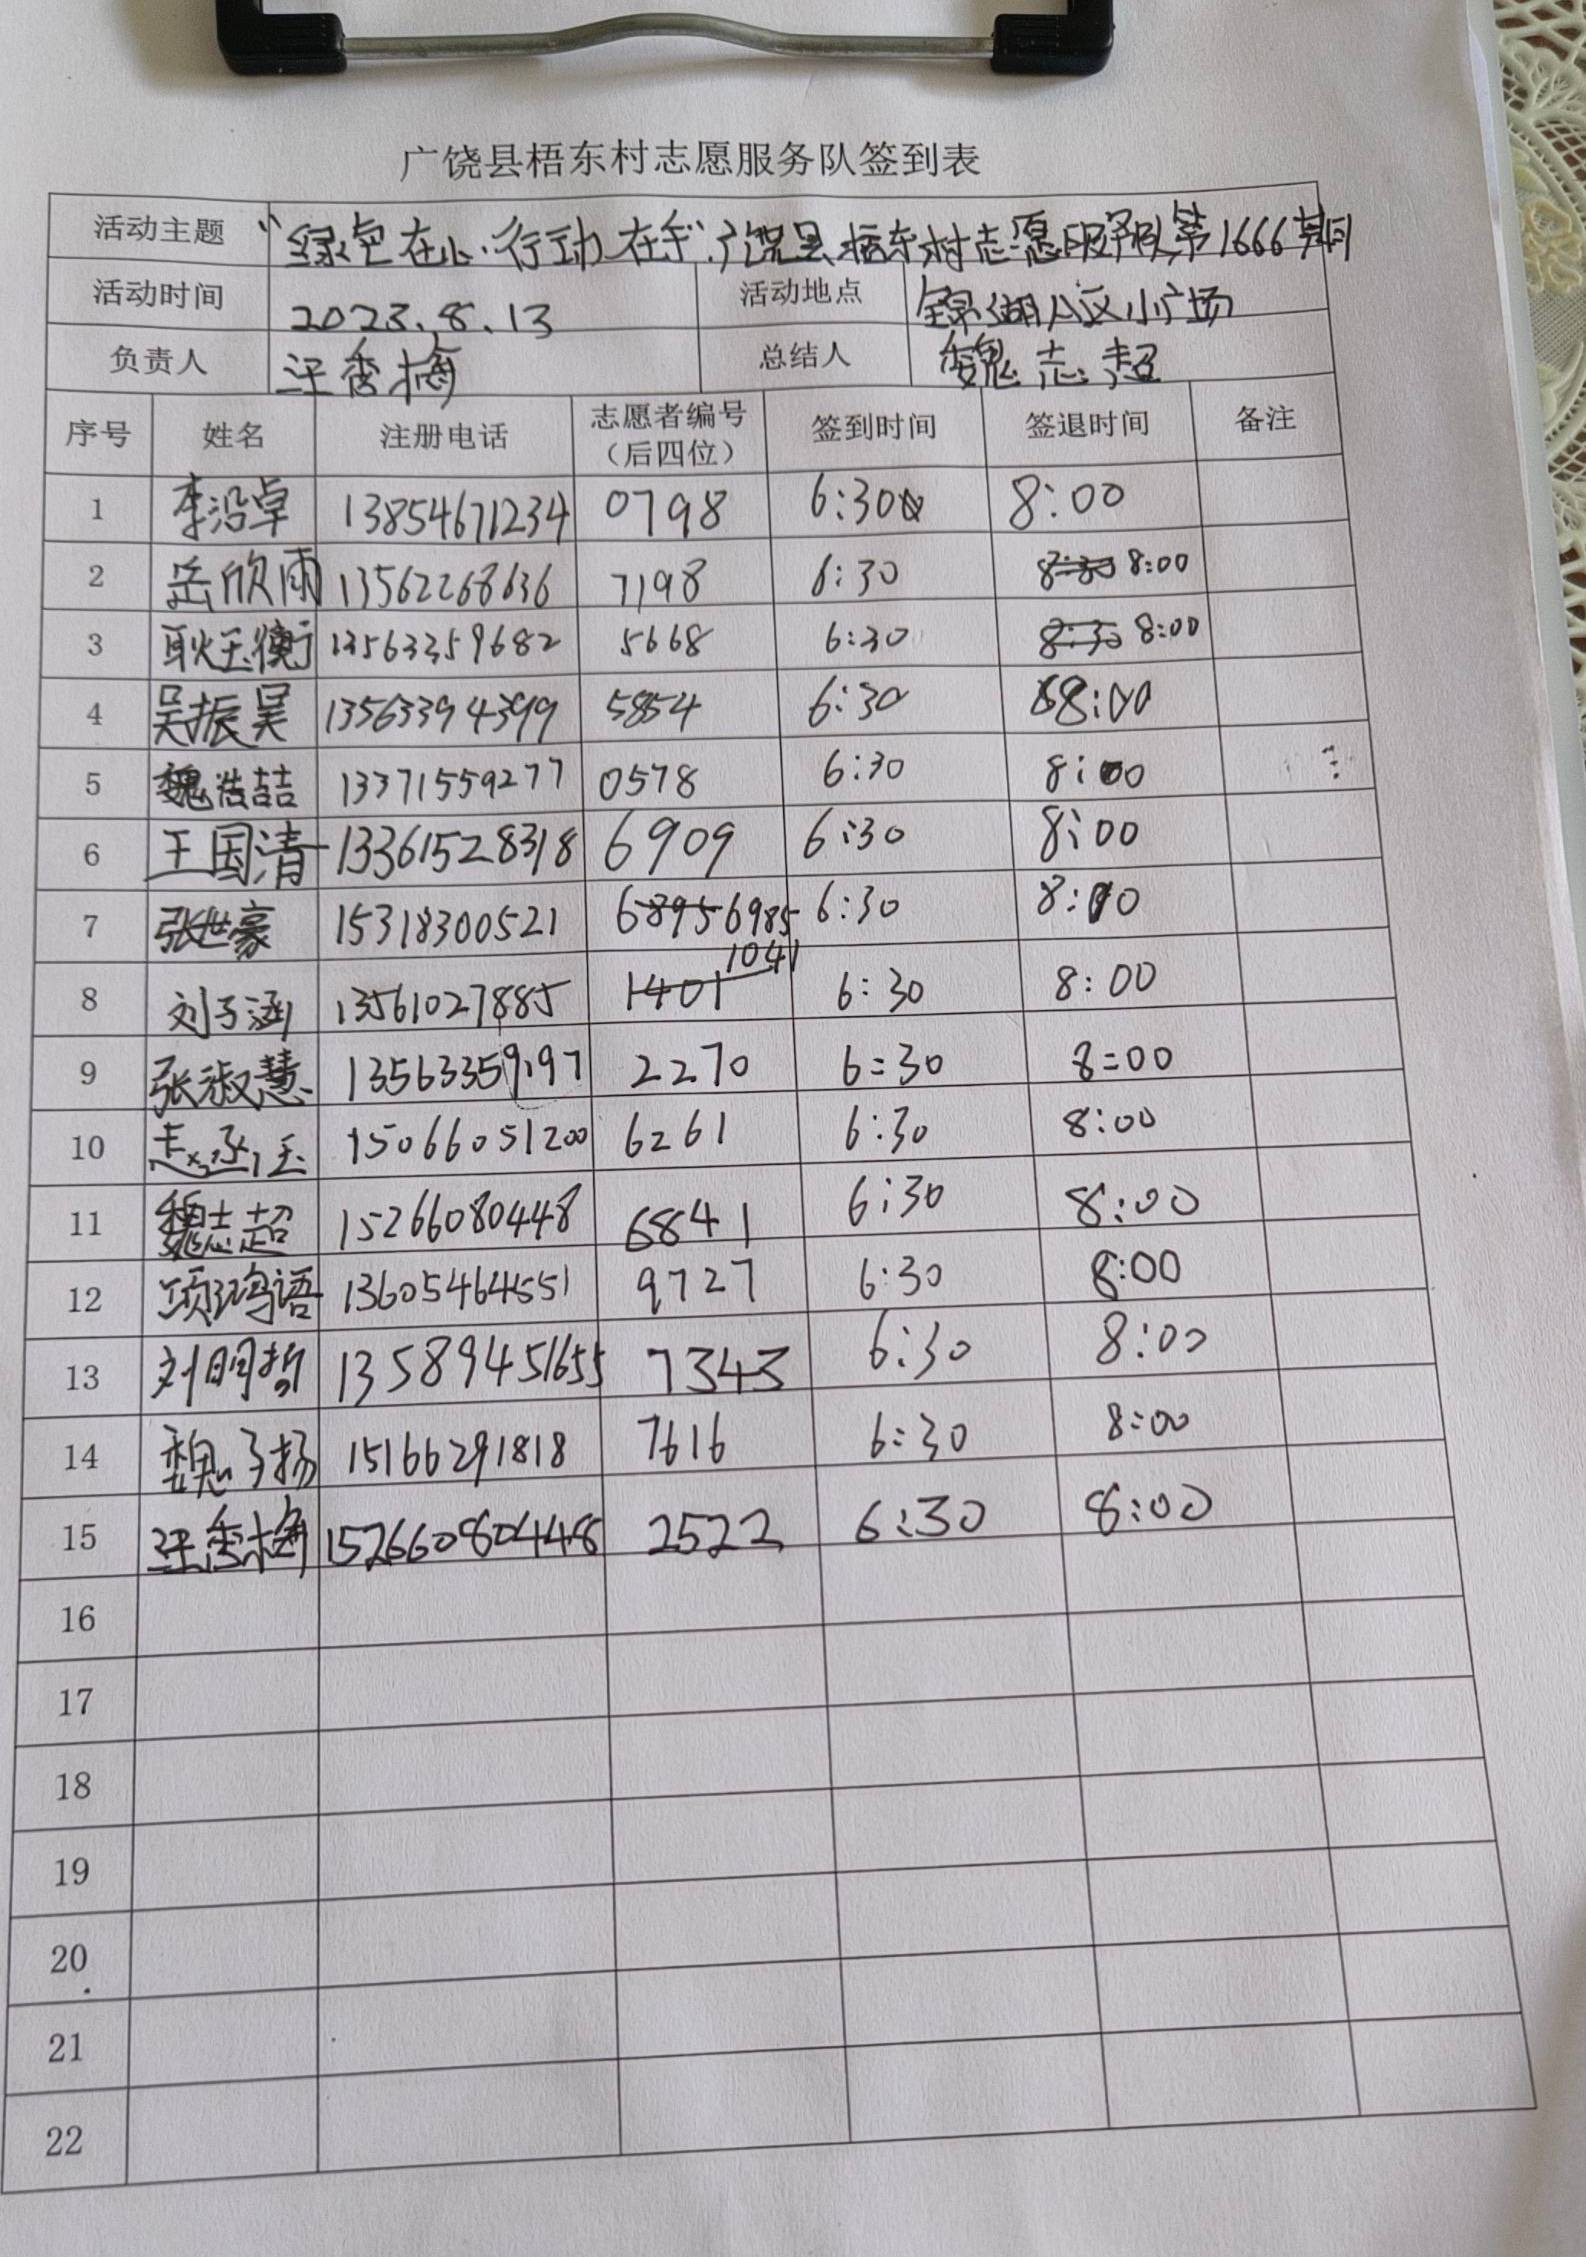 广饶县梧东村志愿服务队签到表
活动主题 “绿色在心·行动在手”广饶县梧东村志愿服务队第1666期
活动时间 2023.8.13 活动地点 锦湖小区小广场
负责人 汪香梅 总结人 魏志超
序号 姓名 注册电话 志愿者编号（后四位） 签到时间 签退时间 备注
1 李沿卓 13854671234 0798 6:30 8:00
2 岳欣雨 13562268636 7198 6:30 8:30 8:00
3 耿玉衡 13563359682 5668 6:30 8:30 8:00
4 吴振昊 13563394399 5854 6:30 8:00
5 魏浩喆 13371559277 0578 6:30 8:00
6 王国清 13361528318 6909 6:30 8:00
7 张世豪 15318300521 6895 6985 6:30 8:00
8 刘子涵 13561027885 1401 1041 6:30 8:00
9 张淑慧 13563359197 2270 6:30 8:00
10 15066051200 6261 6:30 8:00
11 魏志超 15266080448 6841 6:30 8:00
12 项鸿语 13605464551 9727 6:30 8:00
13 刘明哲 13589451655 7343 6:30 8:00
14 魏子扬 15166291818 7616 6:30 8:00
15 汪香梅 15266080448 2522 6:30 8:00
16
17
18
19
20
21
22